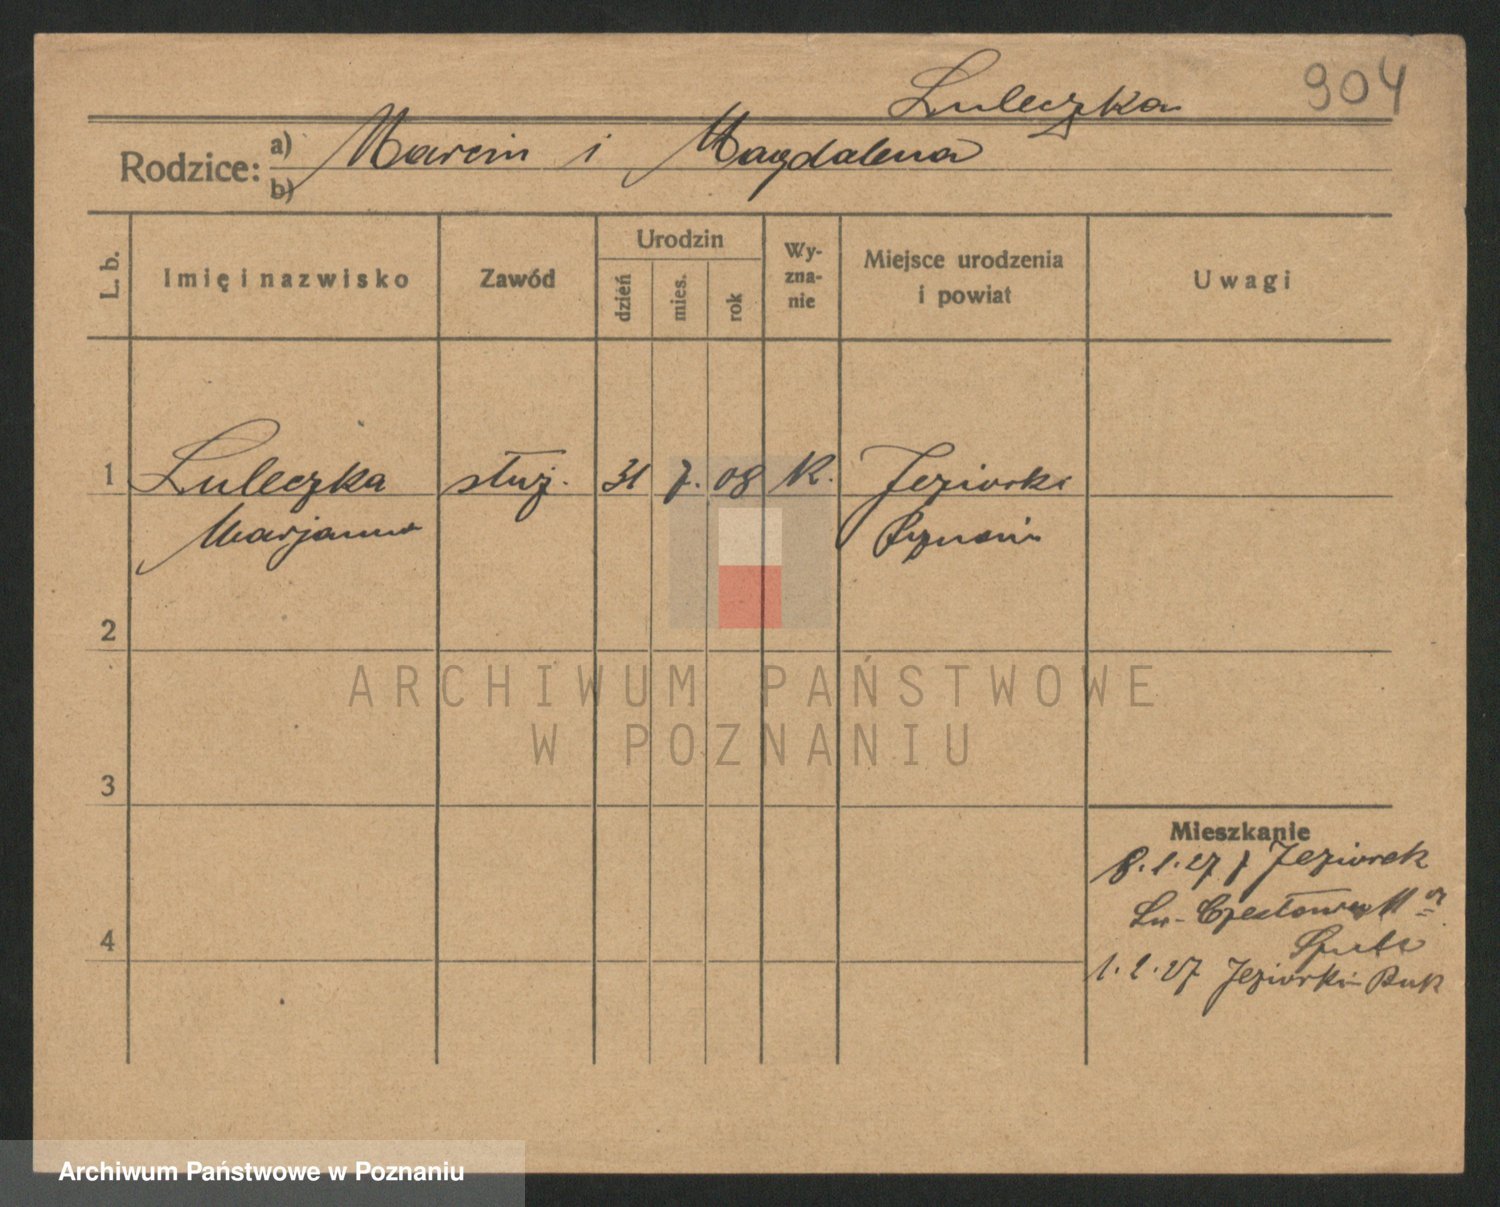 Luleczka
904
Rodzice: a) Marcin i Magdalena
b)
L. b.
Imię i nazwisko
Zawód
Urodzin
dzień
mies.
rok
Wy-
zna-
nie
Miejsce urodzenia
i powiat
Uwagi
1 Luleczka służ. 31 7. 08 K. Jeziorki
Marjanna Poznań
2
3
4
Mieszkanie
8.1.27 z Jeziorek
Św.
1.2.27 Jeziorki Buk
ARCHIWUM PAŃSTWOWE
W POZNANIU
Archiwum Państwowe w Poznaniu